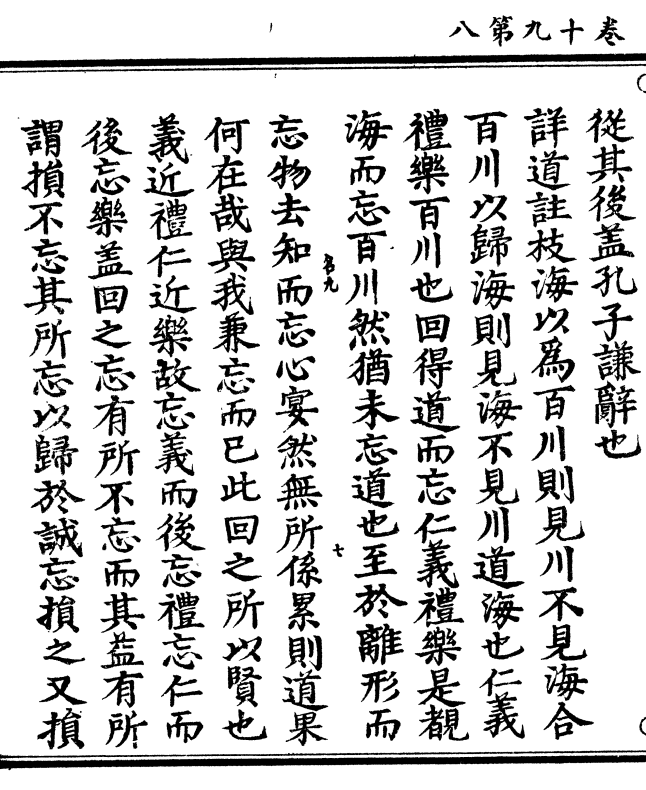 卷十九第八
從其後盖孔子謙辭也
詳道註枝海以爲百川則見川不見海合
百川以歸海則見海不見川道海也仁義
禮樂百川也回得道而忘仁義禮樂是覩
海而忘百川然猶未忘道也至於離形而
忘物去知而忘心宴然無所係累則道果
何在哉與我兼忘而已此回之所以賢也
義近禮仁近樂故忘義而後忘禮忘仁而
後忘樂盖回之忘有所不忘而其益有所
謂損不忘其所忘以歸於誠忘損之又損